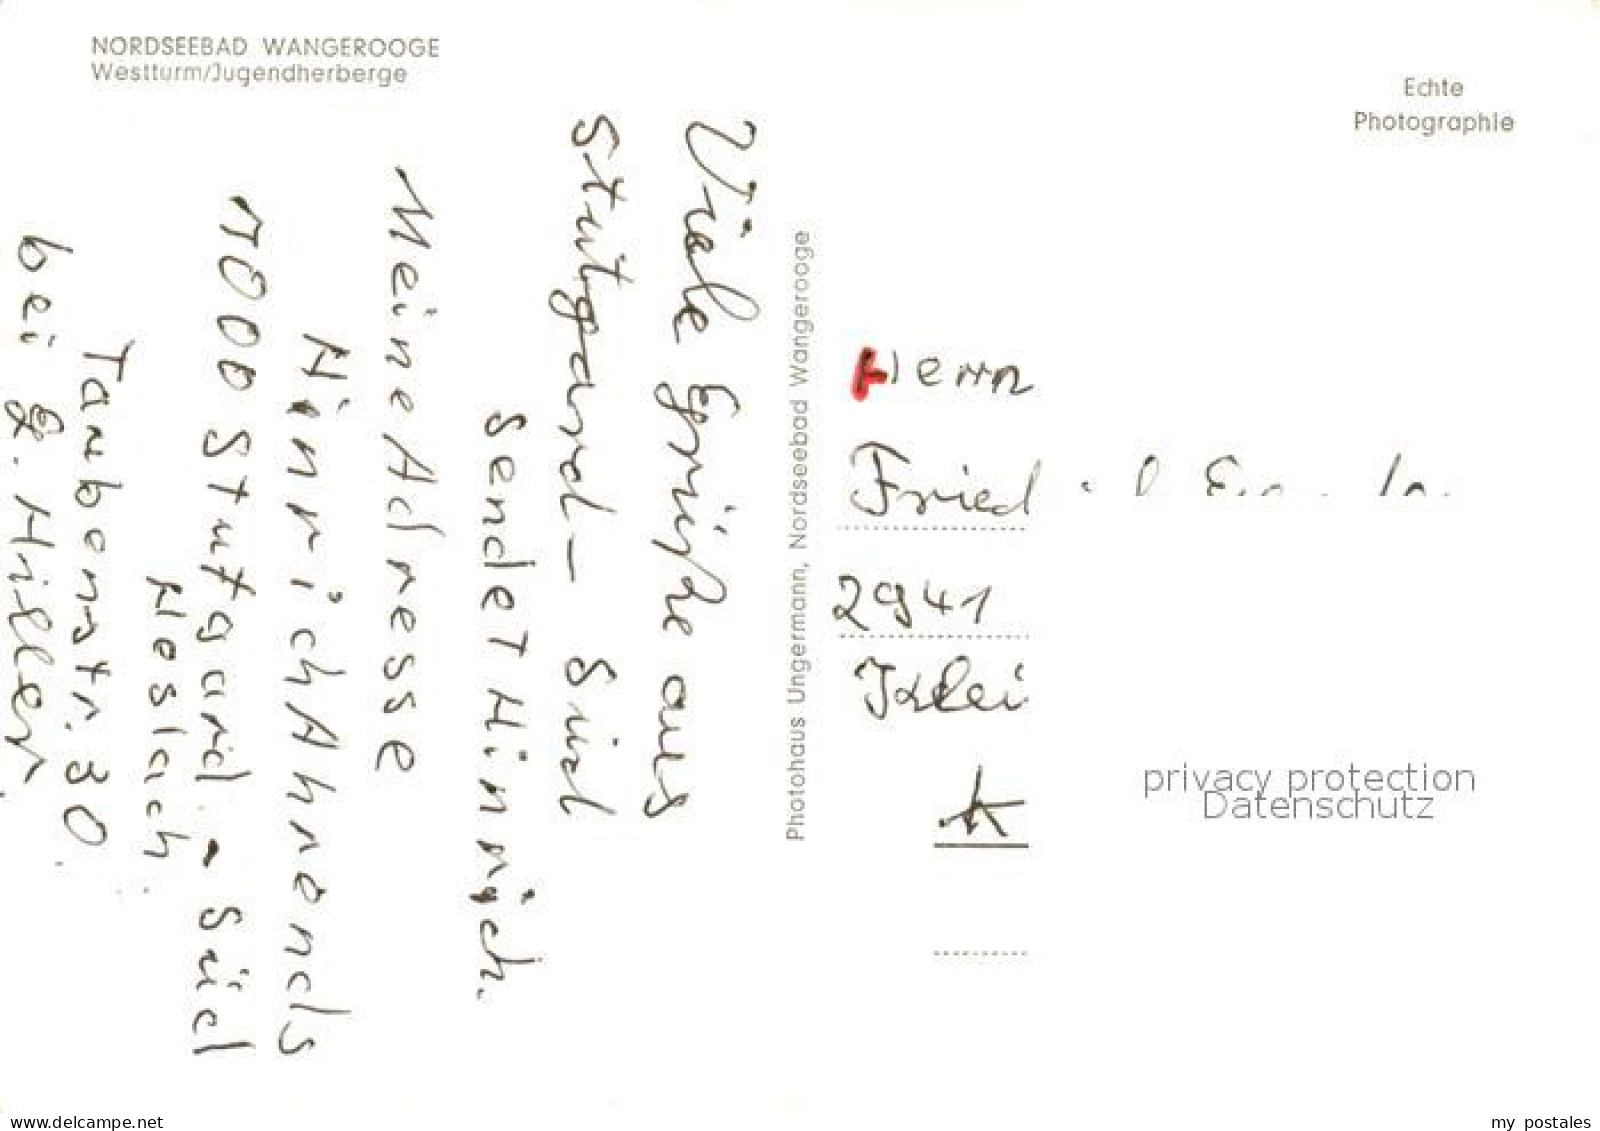 NORDSEEBAD WANGEROOGE
Westturm/Jugendherberge
Echte
Photographie
Viele Grüße aus
Stuttgard – Süd
Sendet Hinrich.
Meine Adresse
Hinrich Ahrends
7000 Stuttgard - Süd
Heslach.
Taubenstr. 30.
bei G. Hiller.
Photohaus Ungermann, Nordseebad Wangerooge
Herrn
Fried
2941
privacy protection
Datenschutz
www.delcampe.net
my_postales